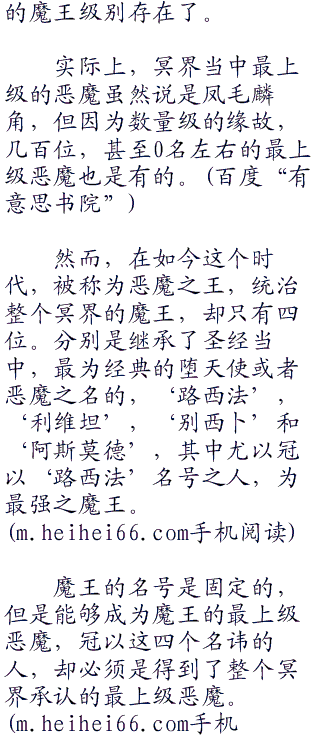 的魔王级别存在了。
实际上，冥界当中最上
级的恶魔虽然说是凤毛麟
角，但因为数量级的缘故，
几百位，甚至0名左右的最上
级恶魔也是有的。(百度“有
意思书院”)
然而，在如今这个时
代，被称为恶魔之王，统治
整个冥界的魔王，却只有四
位。分别是继承了圣经当
中，最为经典的堕天使或者
恶魔之名的，‘路西法’，
‘利维坦’，‘别西卜’和
‘阿斯莫德’，其中尤以冠
以‘路西法’名号之人，为
最强之魔王。
(m.heihei66.com手机阅读)
魔王的名号是固定的，
但是能够成为魔王的最上级
恶魔，冠以这四个名讳的
人，却必须是得到了整个冥
界承认的最上级恶魔。
(m.heihei66.com手机